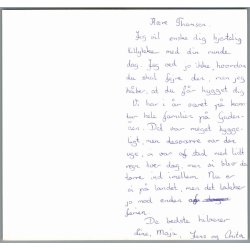 Kære Thomsen.
Jeg vil ønske dig hjertelig
tillykke med din runde
dag. Jeg ved jo ikke, hvordan
du skal fejre den, men jeg
håber, at du får hygget dig
Vi har i år været på
hele familien på Guden-
åen. Det var meget hygge-
ligt, men desværre var den
uge, vi var af sted med lidt
regn hver dag, men vi blev da
tørre ind imellem. Nu er
vi på landet, men det lakker
jo mod enden af
ferien
De bedste hilsener
Line, Maja, Jens og